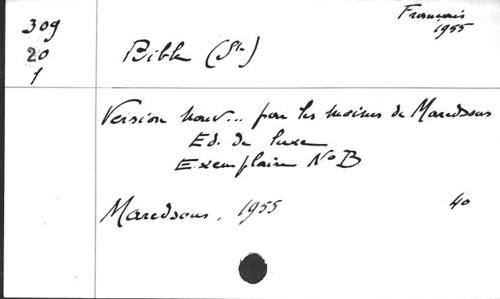 Français
1955
309
20
1
Bible (Ste)
Version nouv... par les moines de Maredsous
Ed. de luxe
Exemplaire No B
Maredsous, 1955
40